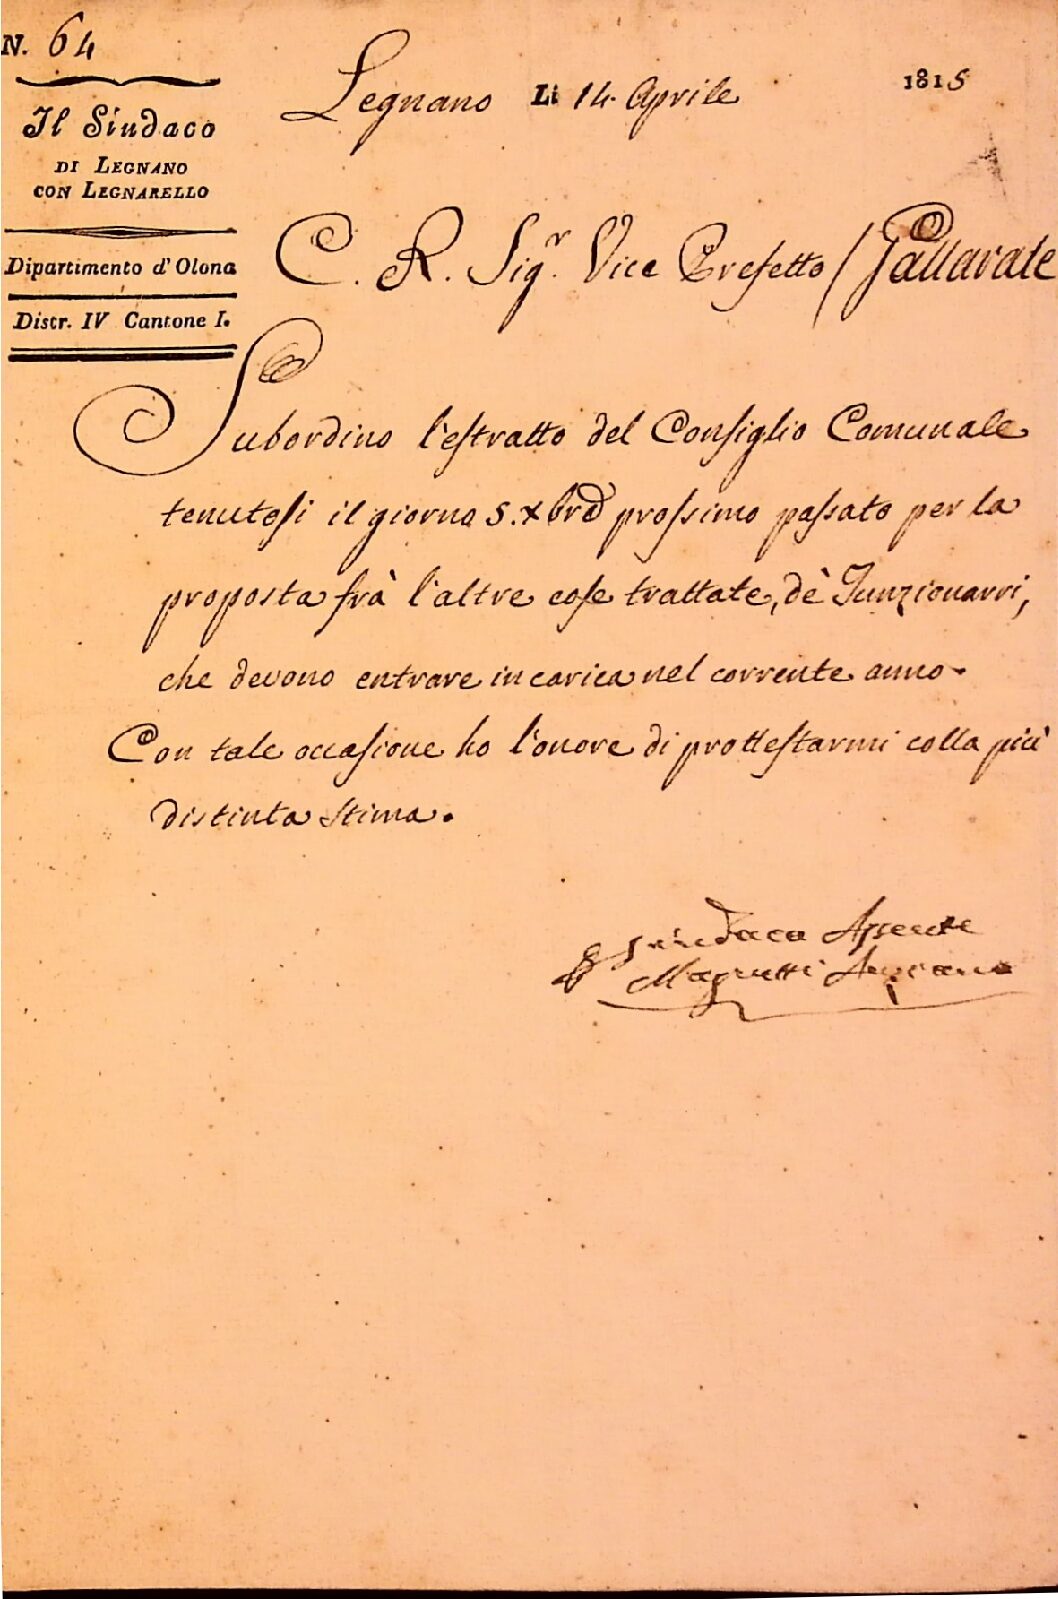 N. 64
Il Sindaco
DI LEGNANO
CON LEGNARELLO
Dipartimento d' Olona
Distr. IV Cantone I.
Legnano Li 14. Aprile 1815
C. R. Sig.r Vice Prefetto / Gallarate
Subordino l'estratto del Consiglio Comunale
tenutosi il giorno 5. xbre prossimo passato per la
proposta frà l'altre cose trattate, dè Funzionarri,
che devono entrare in carica nel corrente anno.
Con tale occasione ho l'onore di prottestarmi colla più
distinta stima.
Sindaco Assente